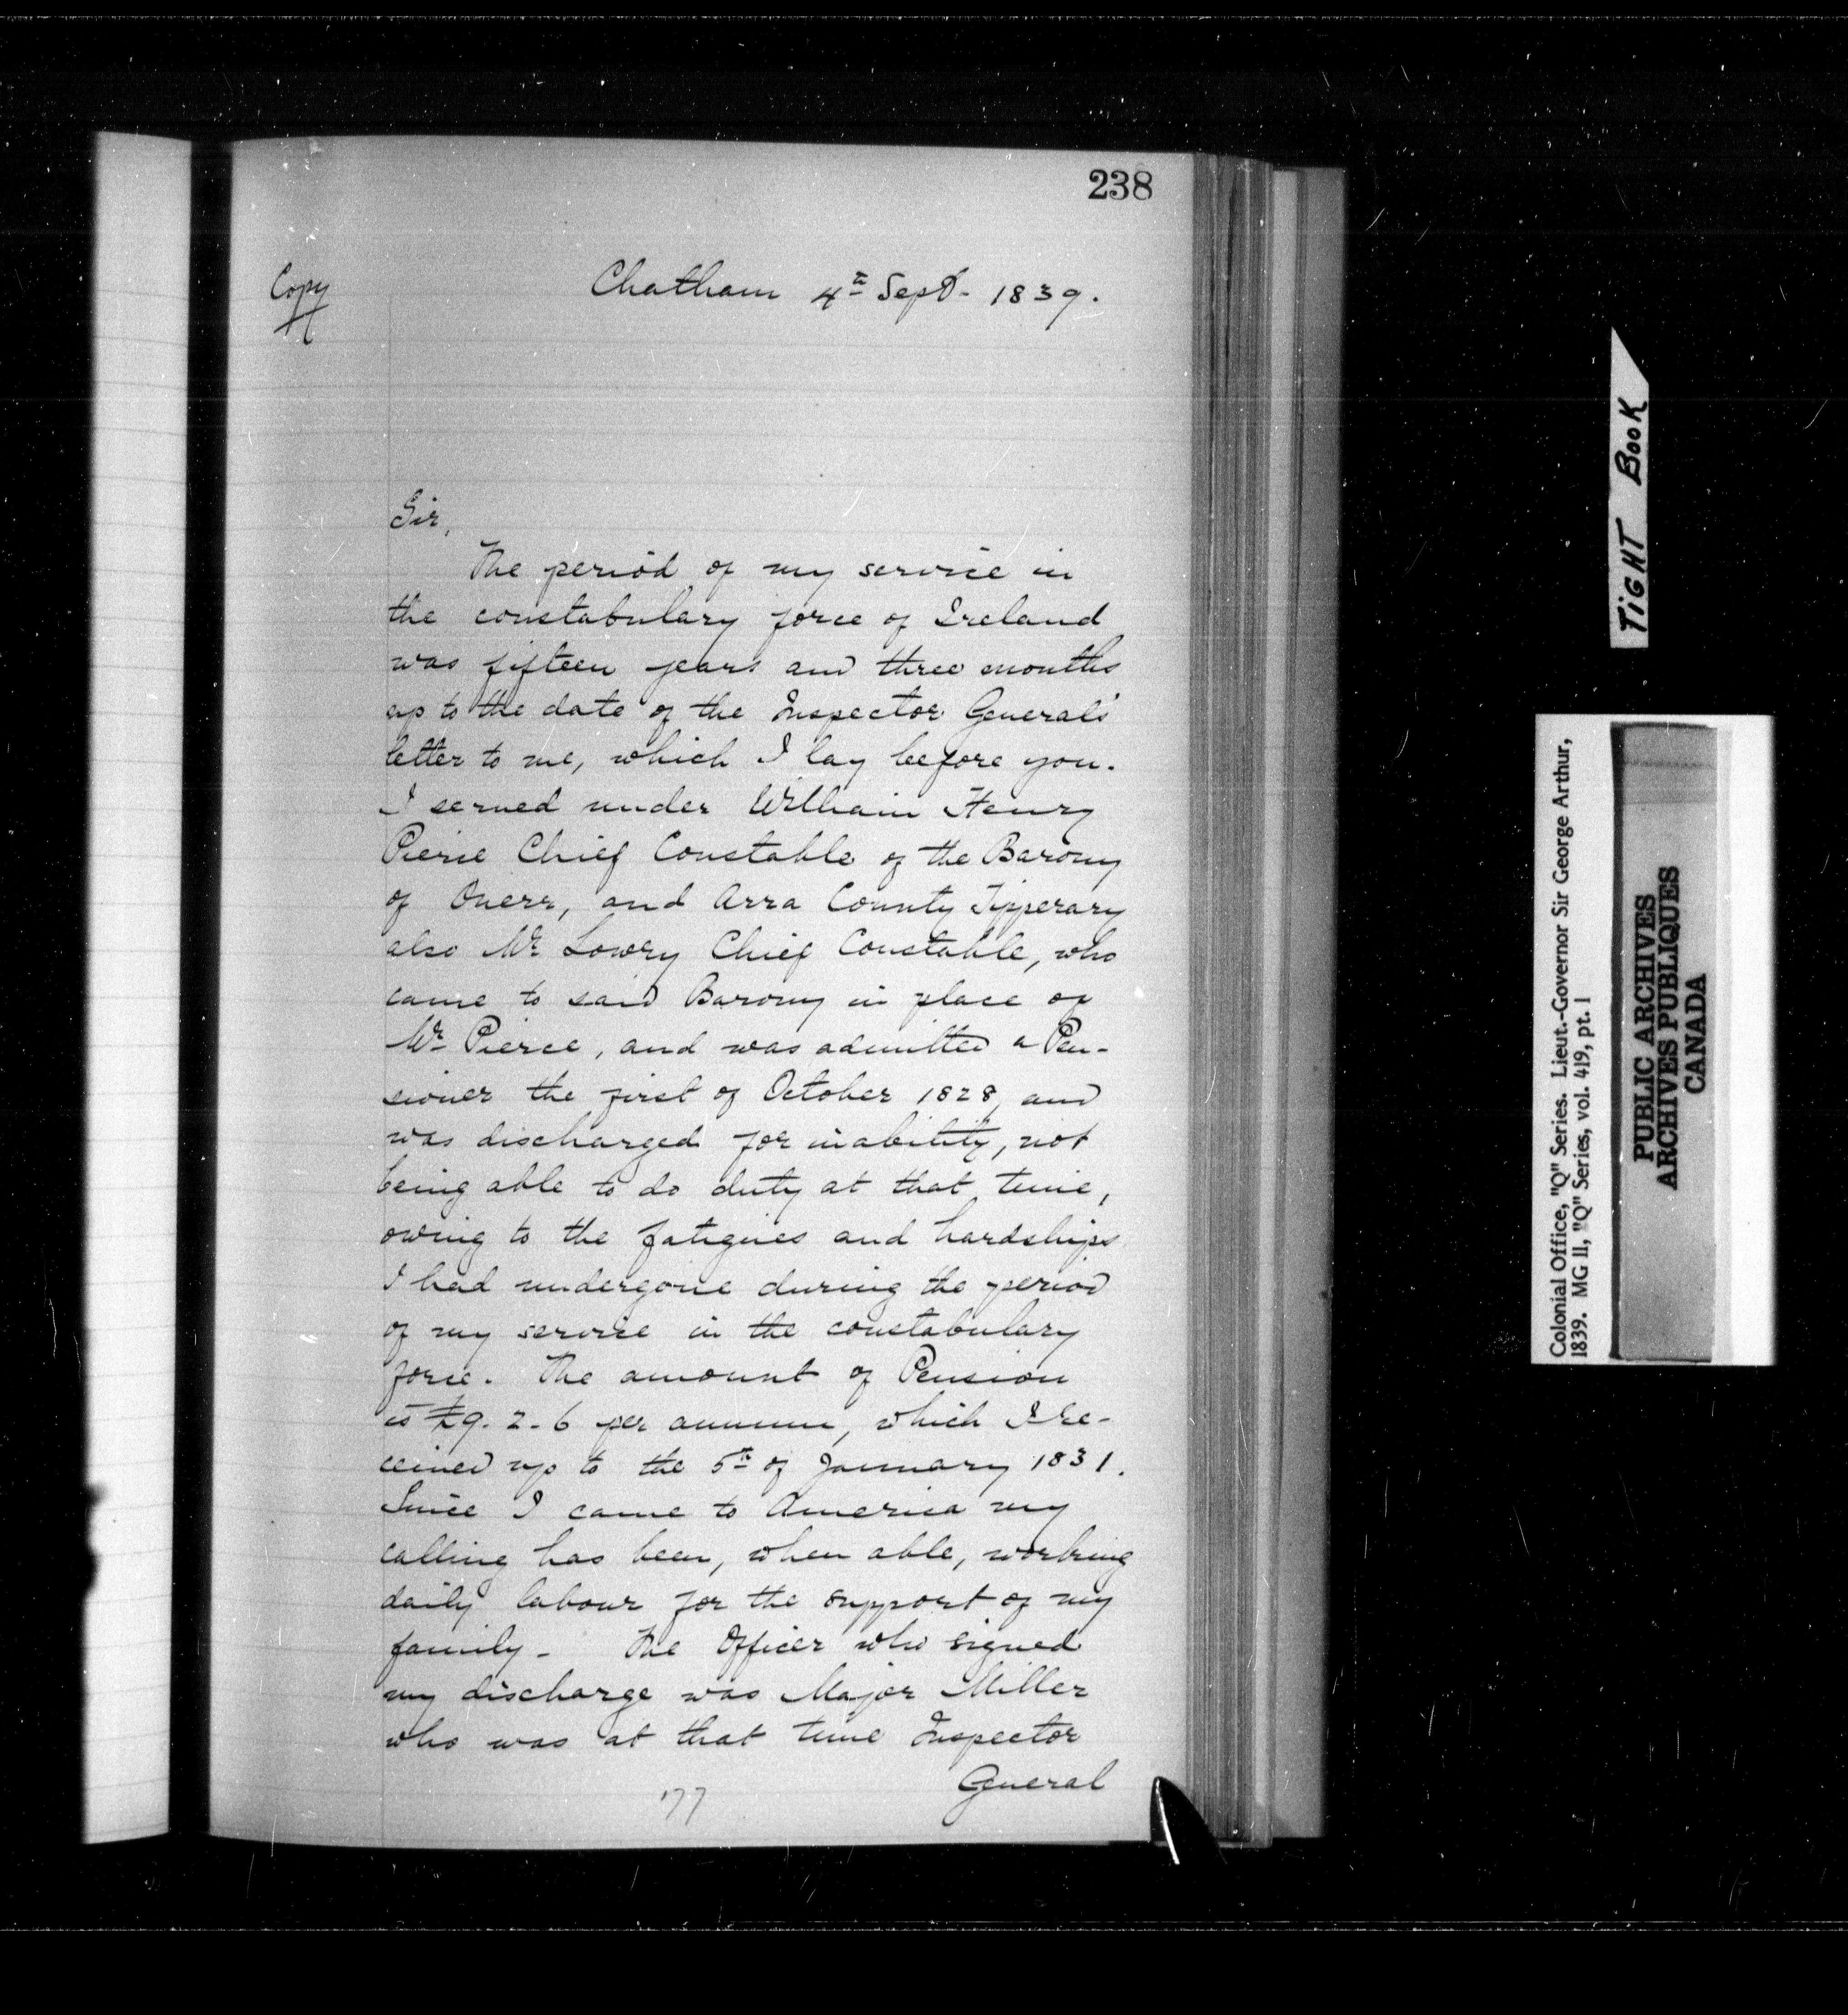 238
Copy
Chatham 4th Sept. 1839.
Sir,
The period of my service in
the constabulary force of Ireland
was fifteen years and three months
up to the date of the Inspector General's
letter to me, which I lay before you.
I served under William Henry
Pierce Chief Constable of the Barony
of Owerr, and Arra County Tipperary
also Mr Lowry Chief Constable, who
came to said Barony in place of
Mr Pierce, and was admitted a Pen-
sioner the first of October 1828, and
was discharged for inability, not
being able to do duty at that time,
owing to the fatigues and hardships
I had undergone during the period
of my service in the constabulary
force. The amount of Pension
is £9. 2. 6 per annum, which I re-
ceived up to the 5th of January 1831.
Since I came to America my
calling has been, when able, working
daily labour for the support of my
family - The Officer who signed
my discharge was Major Miller
who was at that time Inspector
General
177
TIGHT BOOK
Colonial Office, "Q" Series. Lieut.-Governor Sir George Arthur,
1839. MG 11, "Q" Series, vol. 419, pt. 1
PUBLIC ARCHIVES
ARCHIVES PUBLIQUES
CANADA